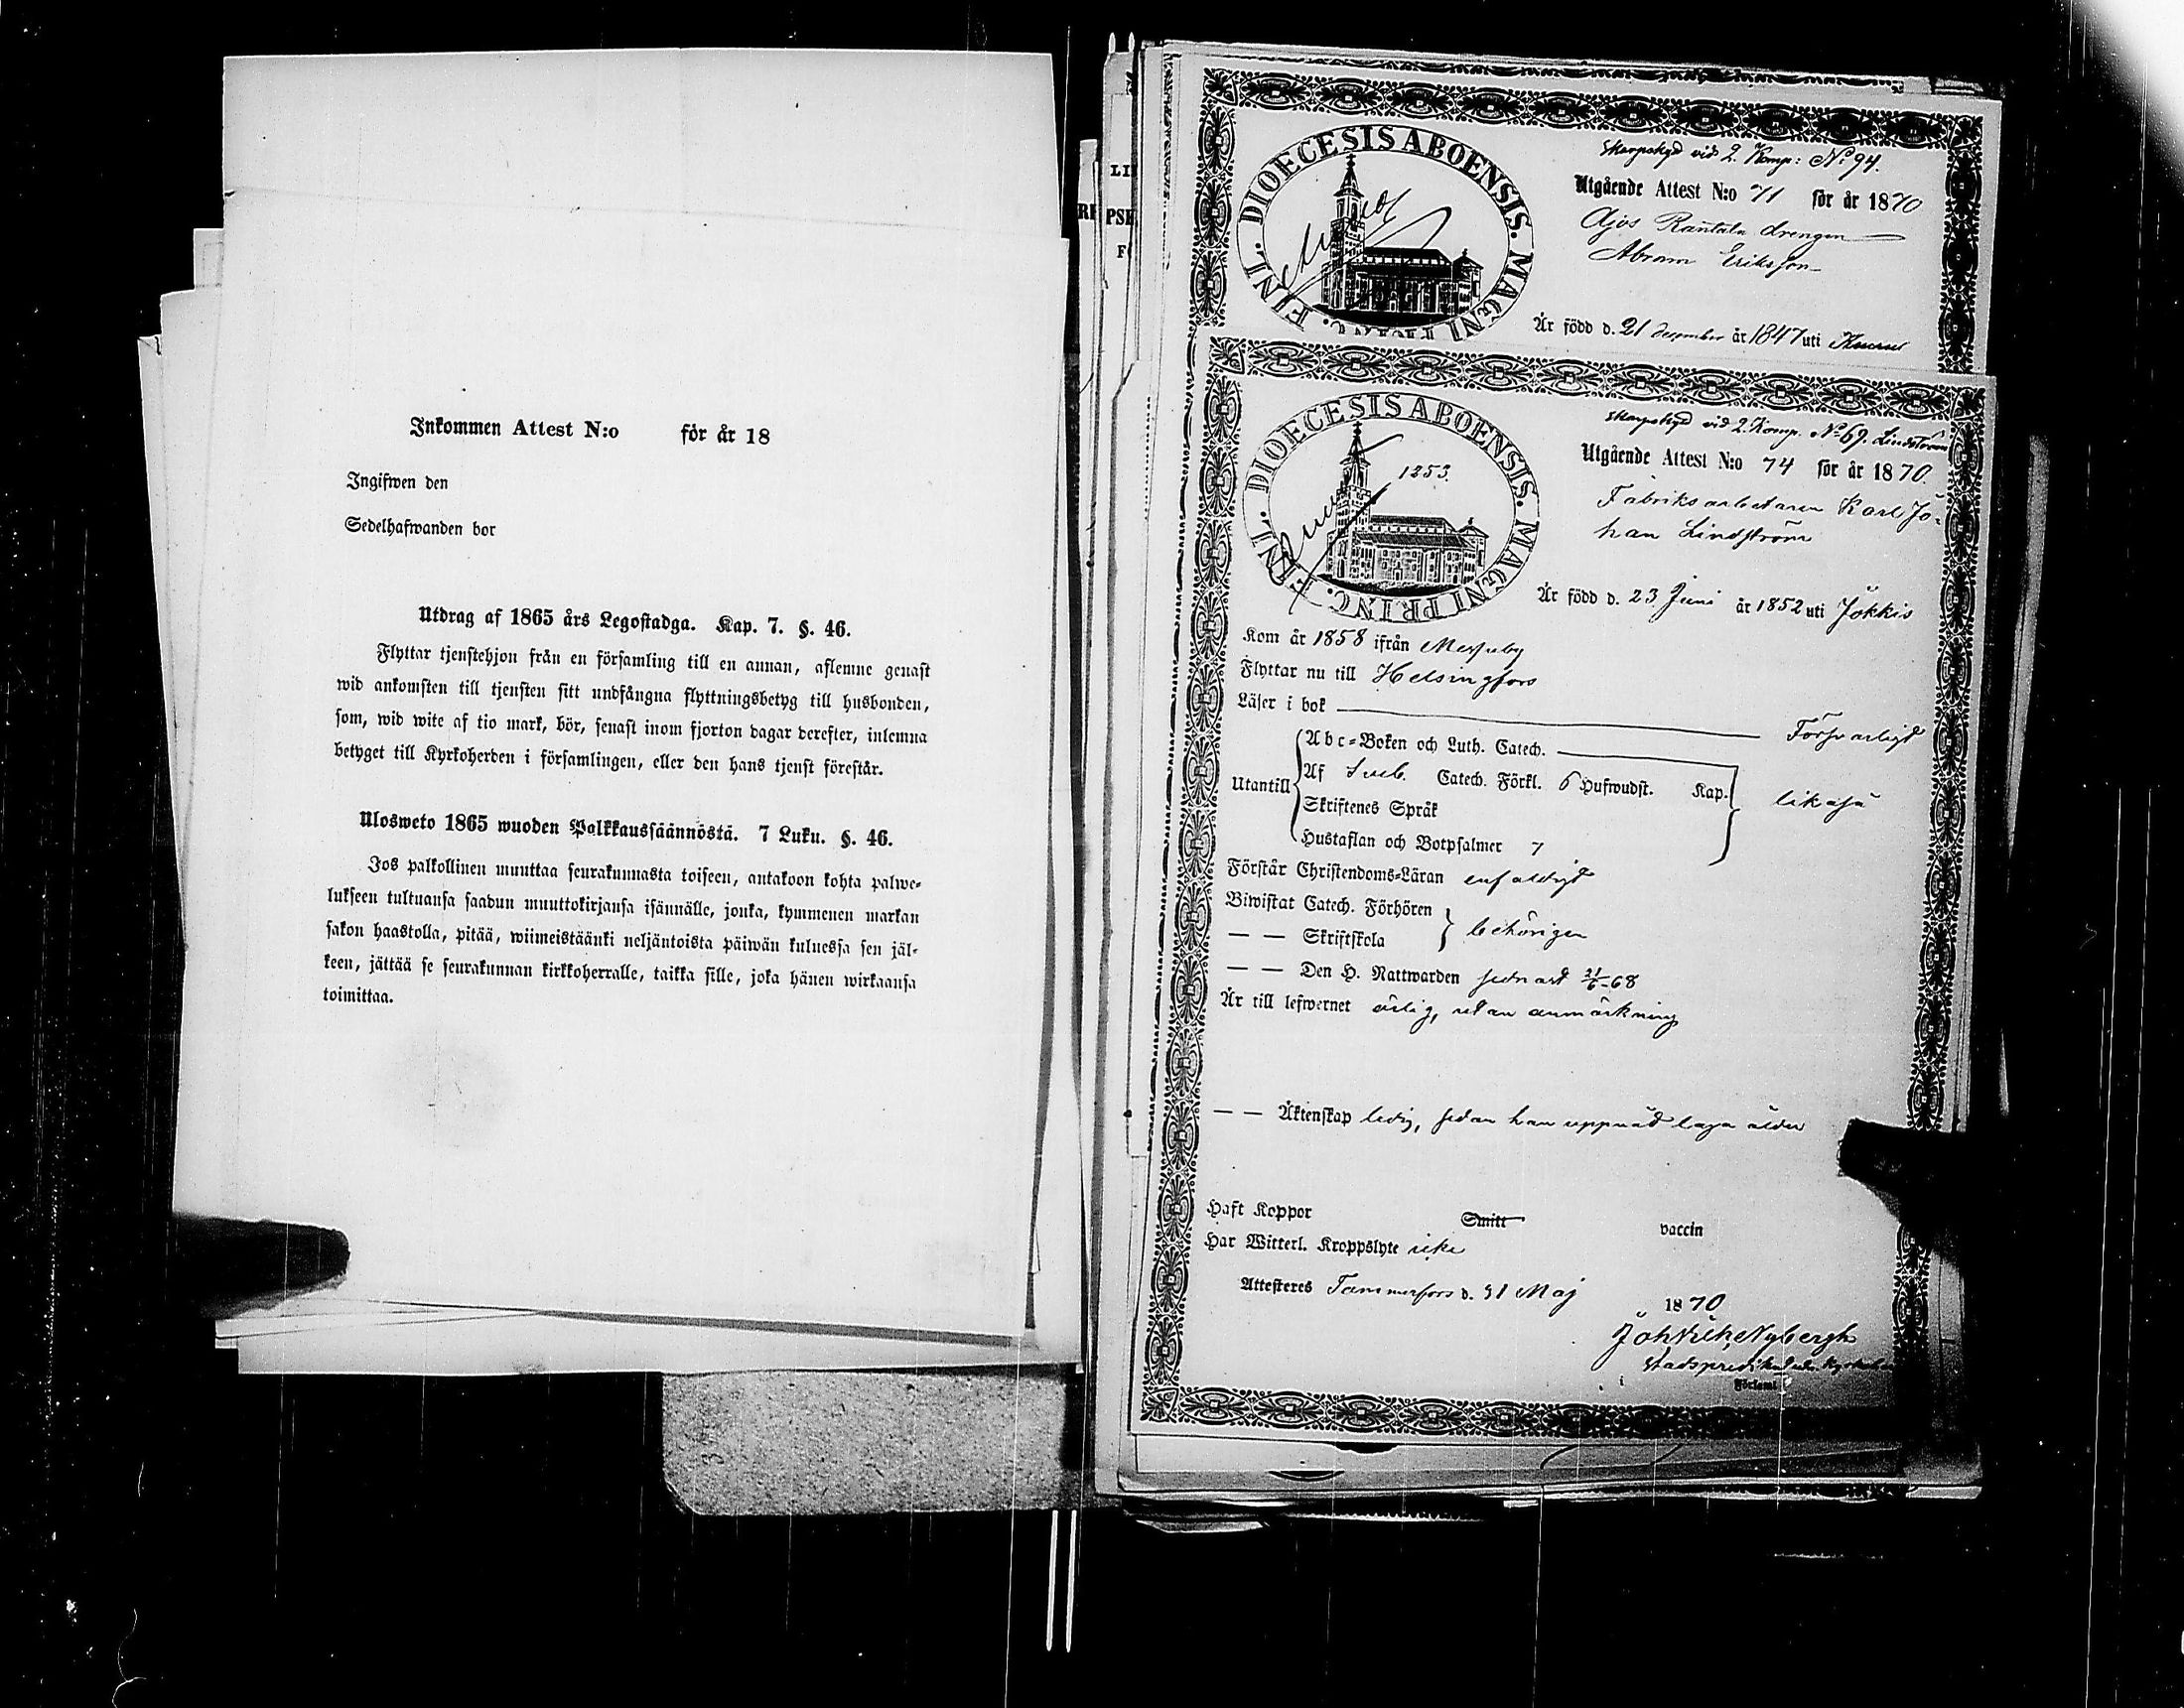 Inkommen Attest N:o för år 18
Ingifwen den
Sedelhafwanden bor
Utdrag af 1865 års Legostadga. Kap. 7. §. 46.
Flyttar tjenstehjon från en församling till en annan, aflemne genast
wid ankomsten till tjensten sitt undfångna flyttningsbetyg till husbonden,
som, wid wite af tio mark, bör, senast inom fjorton dagar derefter, inlemna
betyget till Kyrkoherden i församlingen, eller den hans tjenst förestår.
Ulosweto 1865 wuoden Palkkaussäännöstä. 7 Luku. §. 46.
Jos palkollinen muuttaa seurakunnasta toiseen, antakoon kohta palwe-
lukseen tultuansa saadun muuttokirjansa isännälle, jonka, kymmenen markan
sakon haastolla, pitää, wiimeistäänki neljäntoista päiwän kuluessa sen jäl-
keen, jättää se seurakunnan kirkkoherralle, taikka sille, joka hänen wirkaansa
toimittaa.
DIOECESIS ABOENSIS. MAGNI PRINC. FINL.
Skarpskyt vid 2. Komp: No 94.
Utgående Attest N:o 71 för år 1870
Ajos Rantala drengen
Abram Eriksson
Är född d. 21 december år 1847 uti
DIOECESIS ABOENSIS. MAGNI PRINC. FINL.
1253.
Skarpskyt vid 2. Komp. No 69. Lindström
Utgående Attest N:o 74 för år 1870
Fabriksarbetaren Karl Jo-
han Lindström
Är född d. 23 Juni år 1852 uti Jokkis
Kom år 1858 ifrån Messuby
Flyttar nu till Helsingfors
Läser i bok Försvarligt
Utantill
Abc-Boken och Luth. Catech.
Af Sveb. Catech. Förkl. 6 Hufwudst. Kap. likaså
Skriftenes Språk
Hustaflan och Botpsalmer 7
Förstår Christendoms-Läran enfaldigt
Biwistat Catech. Förhören
— — Skriftskola behörigen
— — Den H. Nattwarden sednast 21/6-68
Är till lefwernet ärlig, utan anmärkning
— — Äktenskap ledig, sedan han uppnåd laga ålder
Haft Koppor Smitt vaccin
Har Witterl. Kroppslyte icke
Attesteres Tammerfors d. 31 Maj 1870
Joh Vilh Nybergh
i Församl